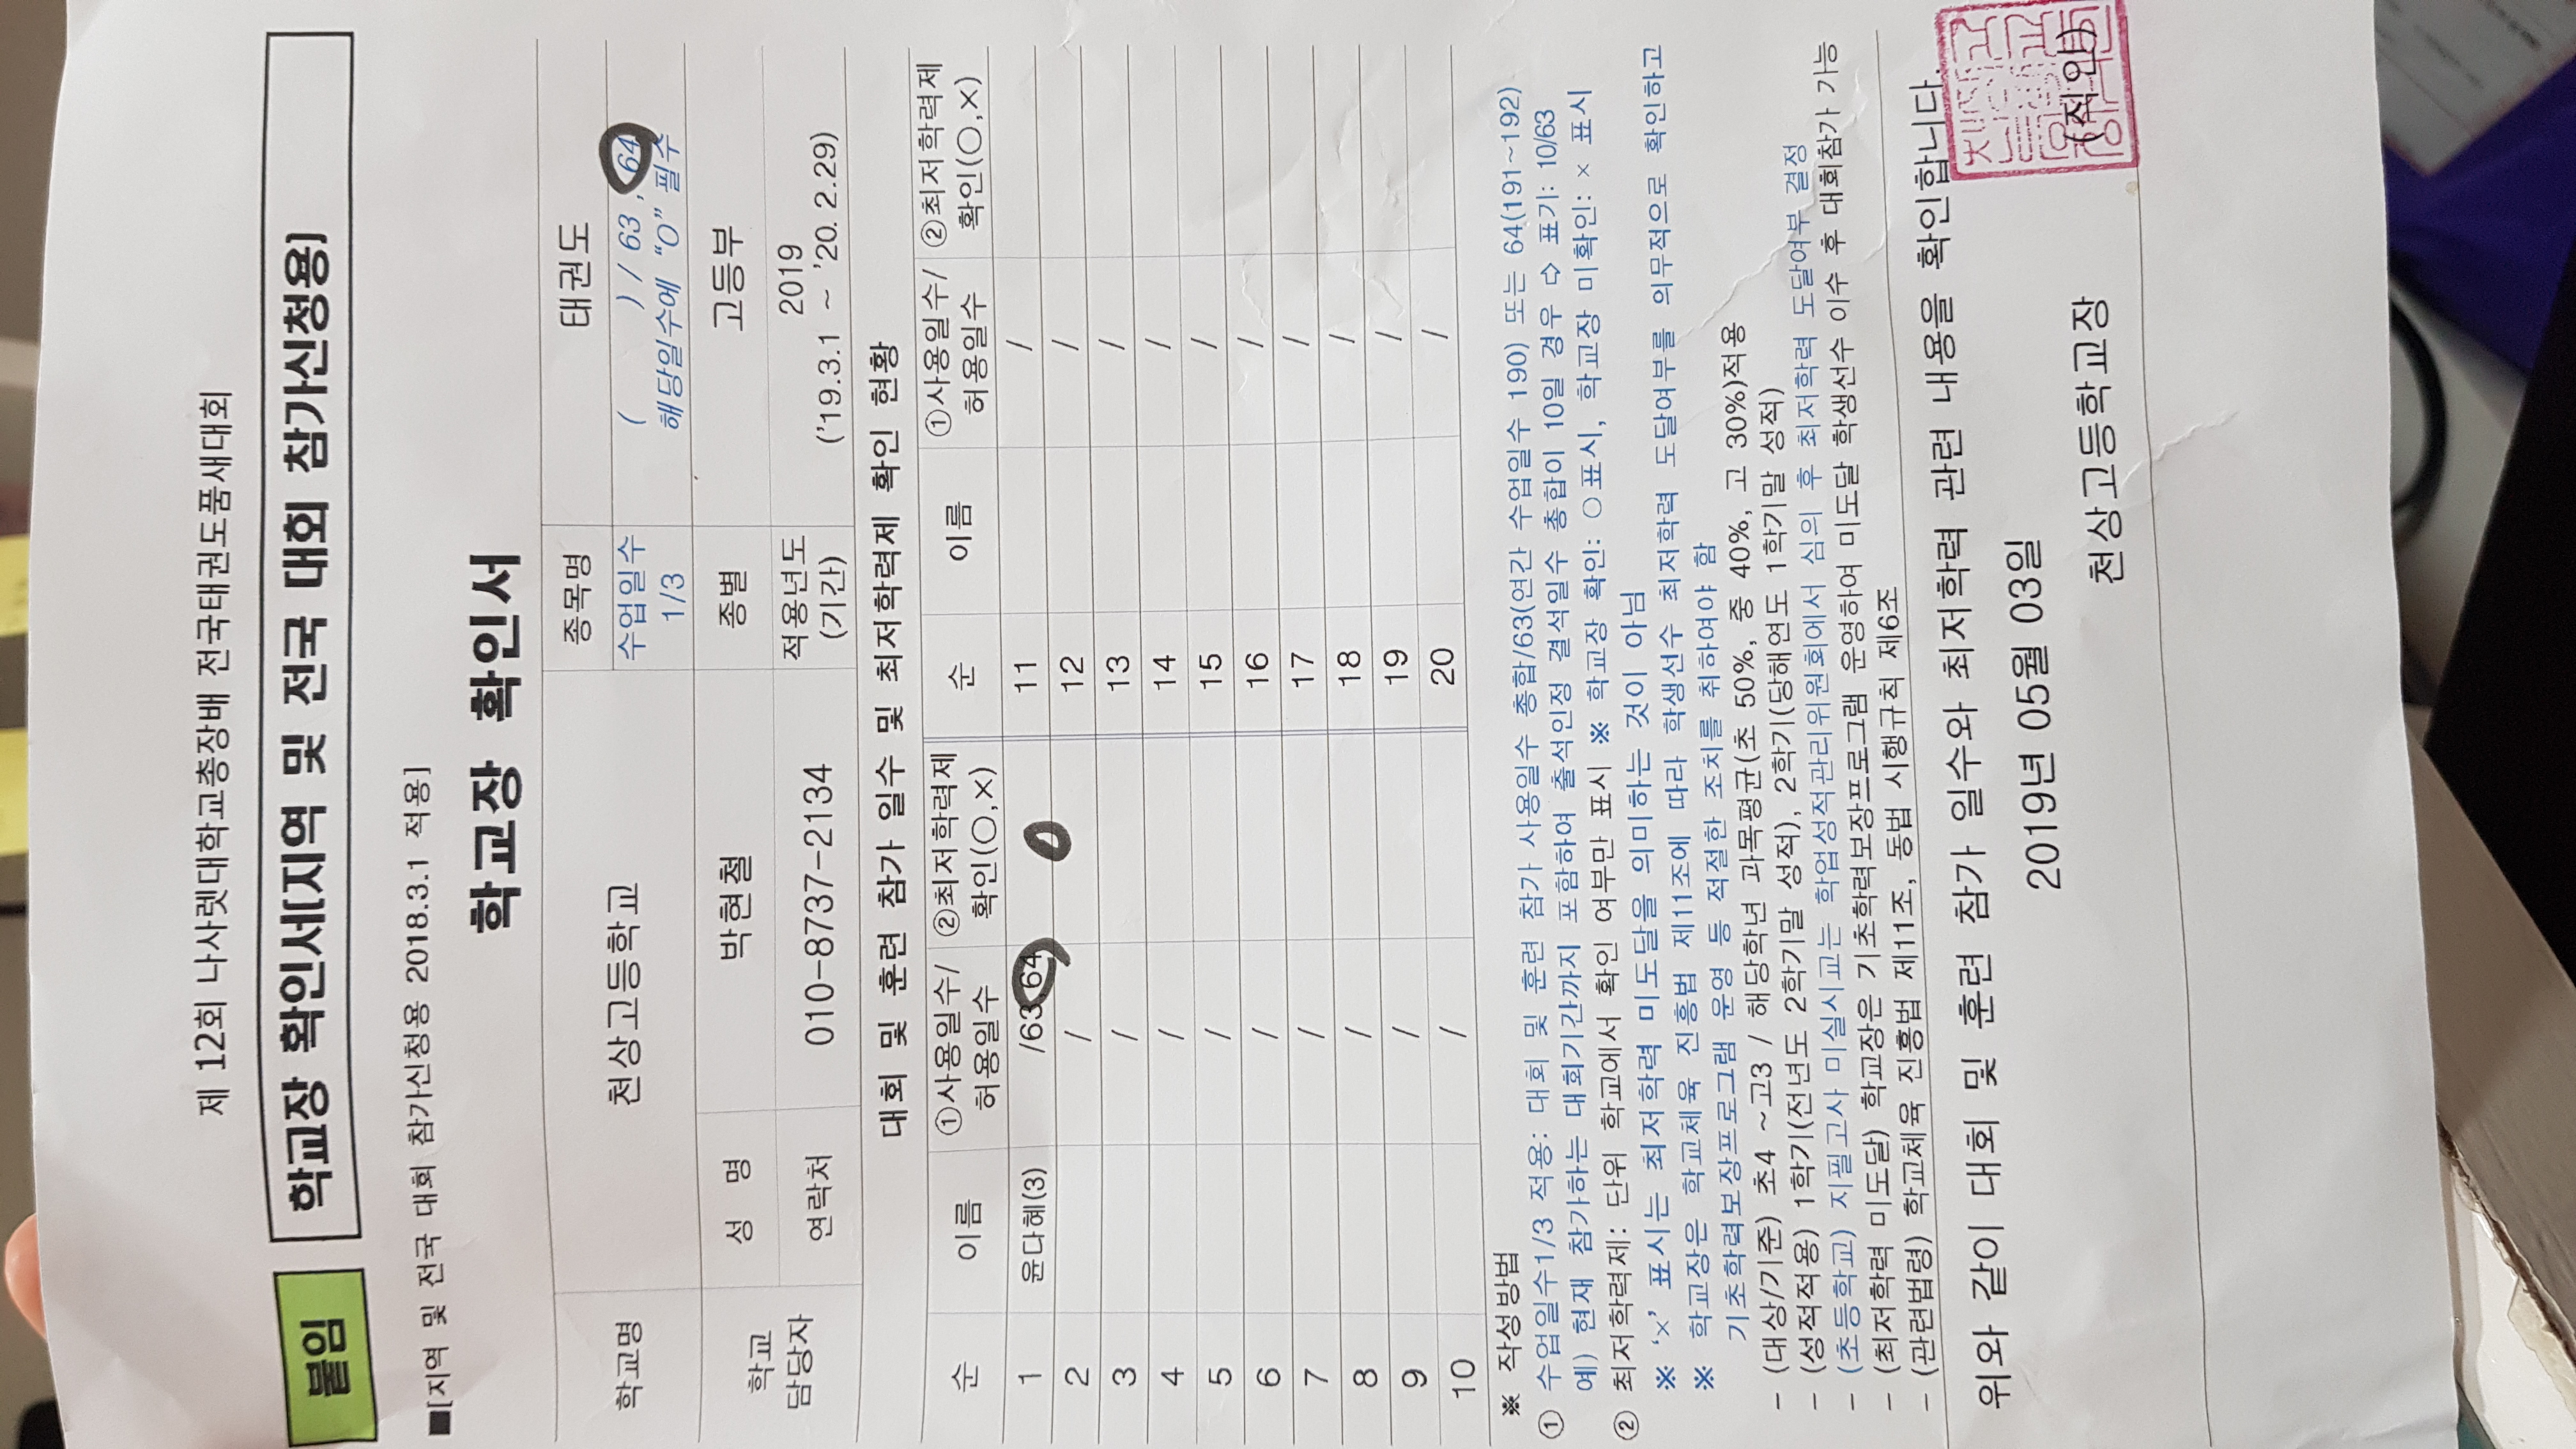 제 12회 나사렛대학교총장배 전국태권도품새대회
붙임 학교장 확인서[지역 및 전국 대회 참가신청용]
■[지역 및 전국 대회 참가신청용 2018.3.1 적용]
학교장 확인서
학교명 천상고등학교 종목명 태권도
수업일수 1/3 ( ) / 63 , 64
해당일수에 "O" 필수
학교 담당자 성 명 박현철 종별 고등부
연락처 010-8737-2134 적용년도 (기간) 2019
('19.3.1 ~ '20. 2.29)
대회 및 훈련 참가 일수 및 최저학력제 확인 현황
순 이름 ①사용일수/허용일수 ②최저학력제 확인(○,×) 순 이름 ①사용일수/허용일수 ②최저학력제 확인(○,×)
1 윤다혜(3) /63,64 O 11 /
2 / 12 /
3 / 13 /
4 / 14 /
5 / 15 /
6 / 16 /
7 / 17 /
8 / 18 /
9 / 19 /
10 / 20 /
※ 작성방법
① 수업일수1/3 적용: 대회 및 훈련 참가 사용일수 총합/63(연간 수업일수 190) 또는 64(191~192)
예) 현재 참가하는 대회기간까지 포함하여 출석인정 결석일수 총합이 10일 경우 ⇨ 표기: 10/63
② 최저학력제: 단위 학교에서 확인 여부만 표시 ※ 학교장 확인: ○표시, 학교장 미확인: × 표시
※ '×' 표시는 최저학력 미도달을 의미하는 것이 아님
※ 학교장은 학교체육 진흥법 제11조에 따라 학생선수 최저학력 도달여부를 의무적으로 확인하고
기초학력보장프로그램 운영 등 적절한 조치를 취하여야 함
- (대상/기준) 초4 ~고3 / 해당학년 과목평균(초 50%, 중 40%, 고 30%)적용
- (성적적용) 1학기(전년도 2학기말 성적), 2학기(당해연도 1학기말 성적)
- (초등학교) 지필고사 미실시교는 학업성적관리위원회에서 심의 후 최저학력 도달여부 결정
- (최저학력 미도달) 학교장은 기초학력보장프로그램 운영하여 미도달 학생선수 이수 후 대회참가 가능
- (관련법령) 학교체육 진흥법 제11조, 동법 시행규칙 제6조
위와 같이 대회 및 훈련 참가 일수와 최저학력 관련 내용을 확인합니다.
2019년 05월 03일
천상고등학교장 (직인)